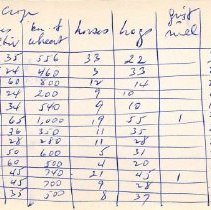 Crop
bu. of horses hogs grist
wheat mill
35 556 33 22
24 460 3 33
60 800 12 14
24 200 9 10
34 540 9 10
65 1,000 19 55 1
36 350 11 35
28 280 11 28
50 600 5 31
60 500 4 20
45 740 21 45 1
45 700 9 28
35 500 8 37